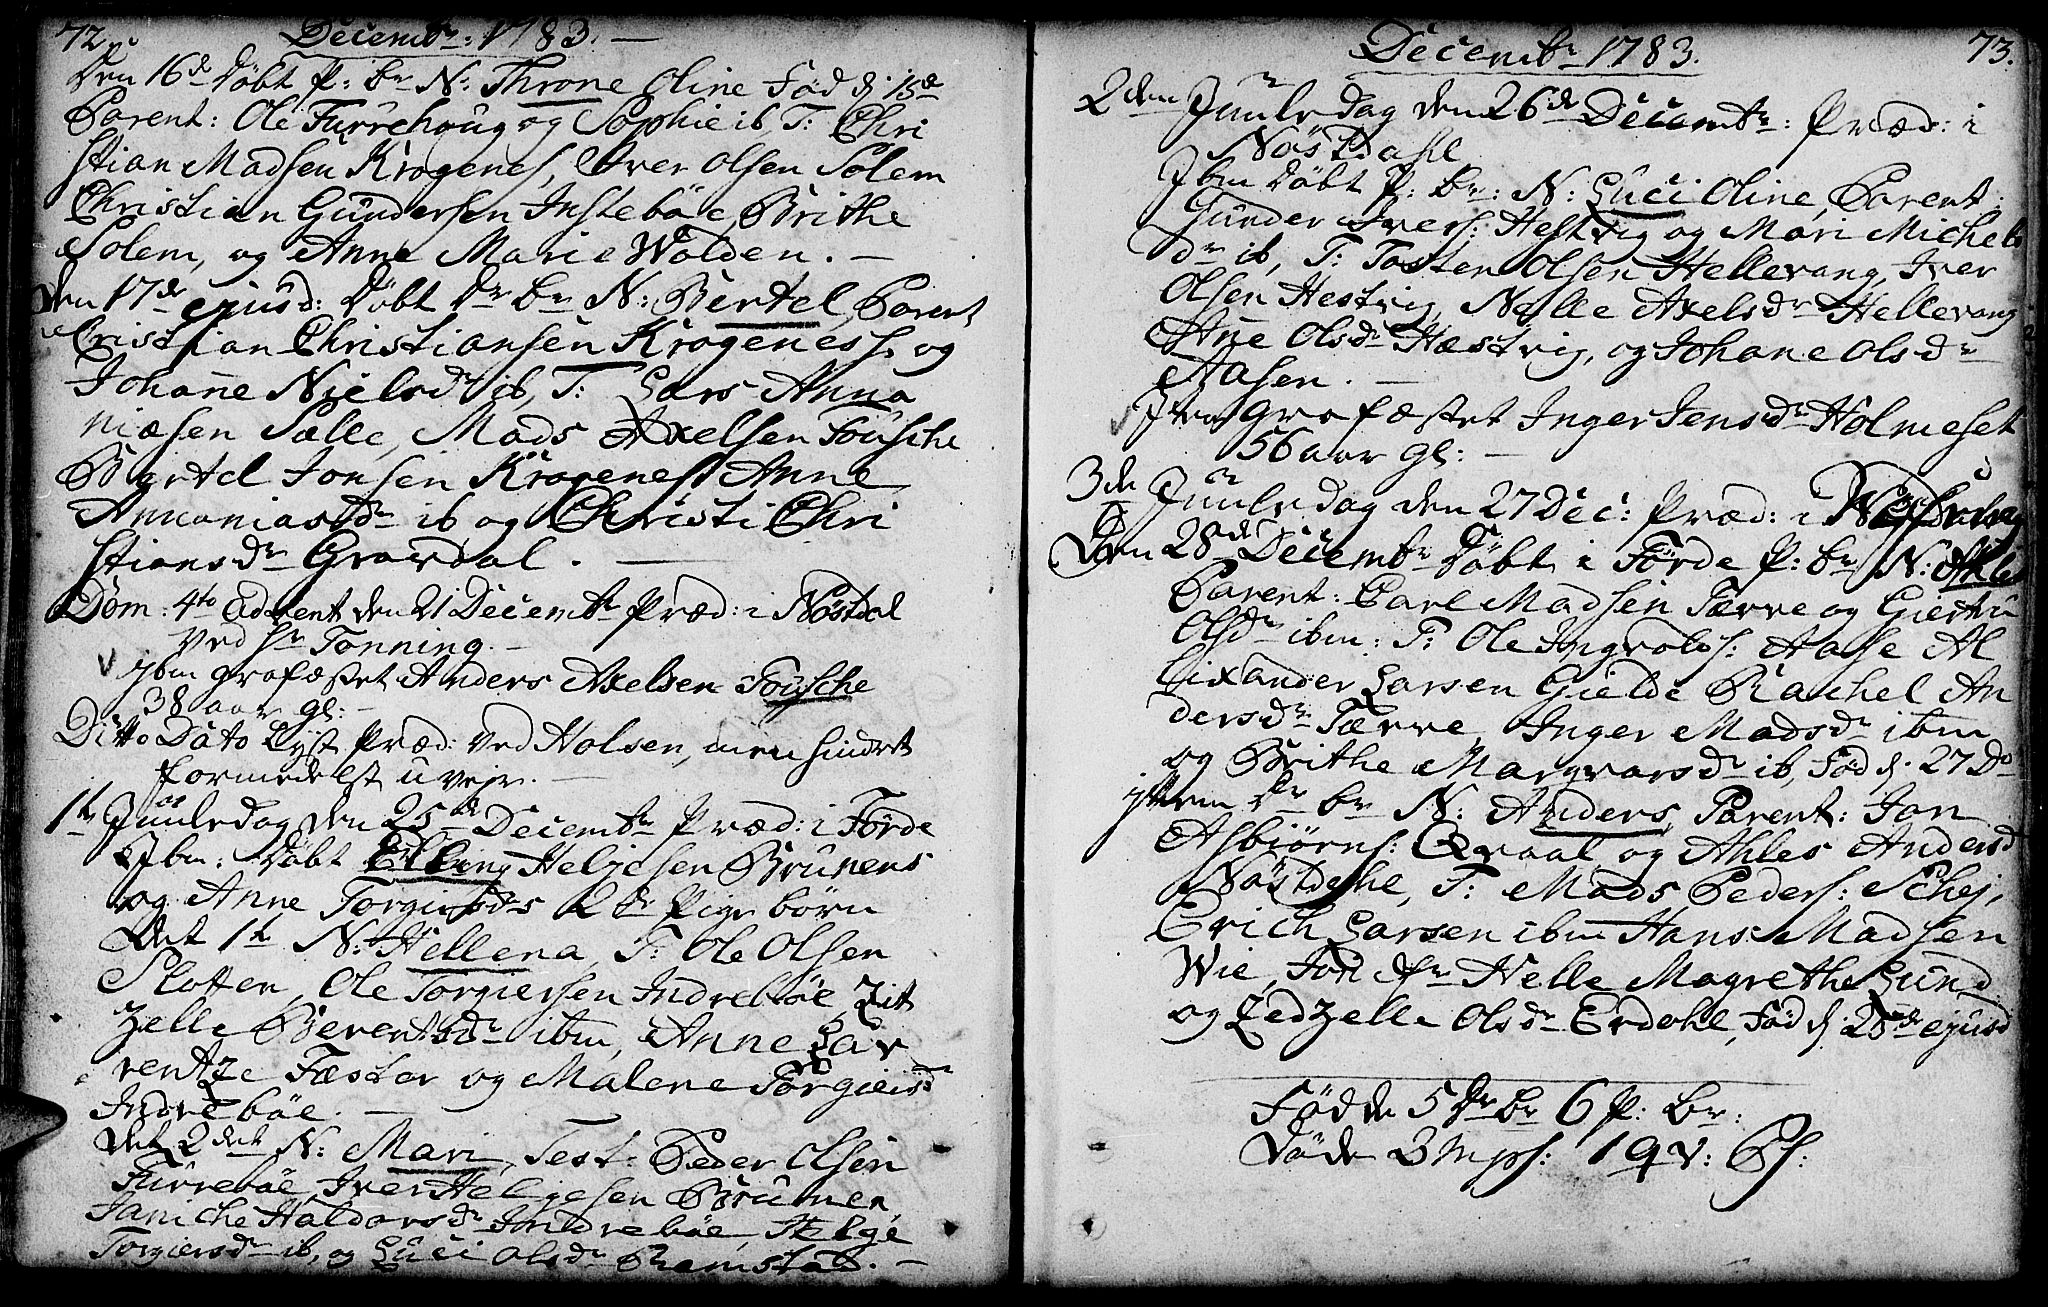 72.
Decembr: 1783. —
Den 16de Døbt P: Br N: Throne Oline Fød d: 15de
Parent: Ole Furrehoug og Sophie ib, T: Chri
stian Madsen Krogenes, Iver Olsen Solem
Christian Gundersen Instebøe, Brithe
Solem, og Anne Marie Wolden. —
Den 17de ejusd: Døbt Dr Br N: Bertel, Parent
Cristian Christiansen Krogeness og
Johanne Nielsdr ib, T: Lars Anna
niæsen Sælle, Mads Axelsen Fousche
Bertel Jonsen Krogenes Anne
Annaniasdr ib og Christi Chri
stiansdr Grovdal. —
Dom: 4to Advent den 21 Decembr Præd: i Nøstdal
ved Hr Tonning. —
Ibm grafæstet Anders Axelsen Fousche
38 aar gl: —
Ditto Dato lyst Præd: ved Holsen, men hindret
formedelst uvejr. —
1te Juuledag den 25de Decembr Præd: i Førde
Ibm: Døbt Elling Heljesen Brunens
og Anne Torgiersdrs 2de Pige børn
Det 1te N: Hellena, T: Ole Olsen
Slotten, Ole Torgiersen Indrebøe, Zit
zelle Berentsdr ibm, Anne Lav
rentze Fæster og Malene Torgiersd
Indrebøe. —
Det 2det N: Mari, Test: Peder Olsen
Furrebøe, Iver Heljesen Brumen,
Janiche Haldorsdr Indrebøe, Helge
Torgiersdr ib, og Luci Olsdr Ramstad. —
73.
Decembr 1783.
2den Juuledag den 26de Decembr: Præd: i
Nøstdahl
Ibm Døbt P: Br: N: Luci Oline, Parent:
Gunder Ivers: Hestvig og Mari Michels
dr ib, T: Tosten Olsen Hellevang, Iver
Olsen Hestvig, Nelle Axelsdr Hellevang
Ane Olsdr Hæstvig, og Johane Olsdr
Aasen. —
Ibm grafæstet Inger Jensdr Holmeset
56 aar gl: —
3de Juuledag den 27 Dec: Præd: i
Den 28de Decembr Døbt i Førde P: Br N: Ahle
Parent: Carl Madsen Tærre og Giertru
Olsdr ibm: T: Ole Ingvols: Aasse Al
lixander Larsen Gielde Rachel An
dersdr Tærre, Inger Madsdr ibm
og Brithe Margvarsdr ib, Fød d. 27 Do
item Dr Br N: Anders, Parent: Jon
Asbiørns: Qvaal og Ahles Andersd
Nøstdahl, T: Mads Peders: Schej,
Erich Larsen ibm Hans Madsen
Wie, Jomfr Nelle Magrethe Lund
og Zedzelle Olsdr Erdahl, Fød d: 28de ejusd
Fødde 5 Dr Br 6 P: Br:
Døde 3 Mps: 1 qv: Ps: